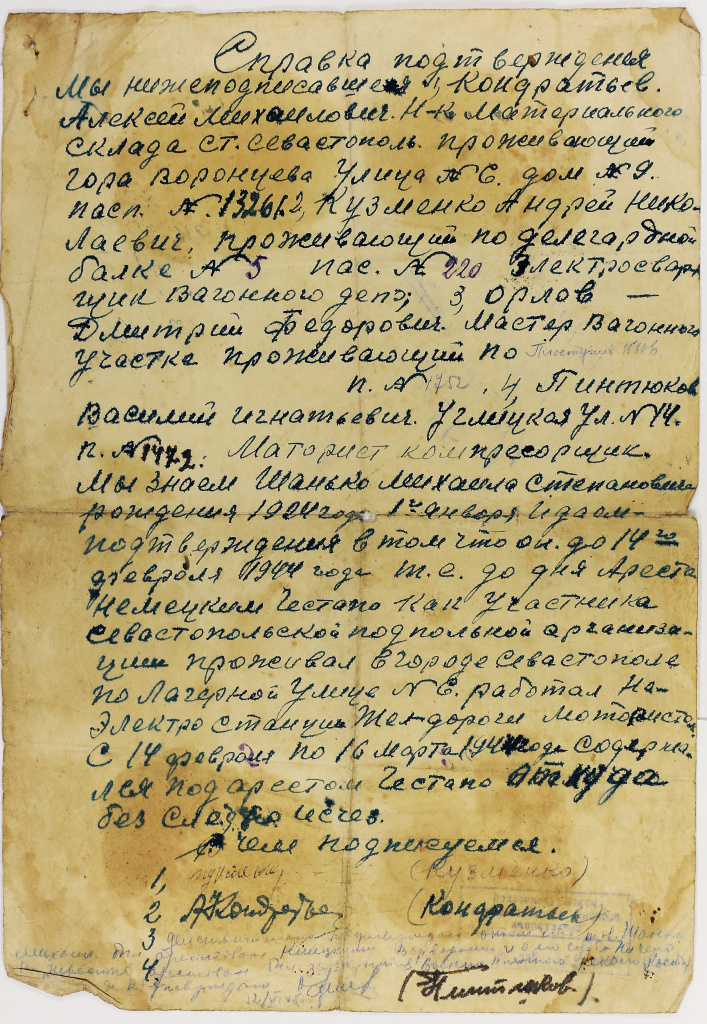 Справка подтверждения
Мы нижеподписавшиеся 1, Кондратьев.
Алексей Михаилович. Н-к Материального
склада ст. Севастополь. проживающий
гора Воронцева Улица № 6. дом № 9.
пасп. №. 1326/2, Кузменко Андрей Нико-
лаевич, проживающий по делегардной
балке № 5 пас. № 220 Электросвар-
щик Вагонного депо; 3, Орлов —
Дмитрий Федорович. Мастер Вагонного
участка проживающий по
п. № 1752. 4, Пинтюков
Василий Игнатьевич. Углицкая Ул. № 14.
п. № 1472. Маторист компресорщик.
Мы знаем Шанько Михаила Степановича
рождения 1924 года 1го января и даем-
подтверждения в том что он. до 14го
февраля 1944 года т.е. до дня Ареста
Немецким Гестапо как участника
Севастопольской подпольной арганиза-
ции проживал в городе Севастополе
по Лагерной Улице № 6. работал На-
Электростанции Жел-дороги мотористом.
С 14 февраля по 16 марта 1944 года содержы-
лся под арестом Гестапо откуда
без следно исчез.
В чем подписуемся.
1, (Кузменко)
2 АКондратьев (Кондратьев)
3
4 (Пинтюков.)